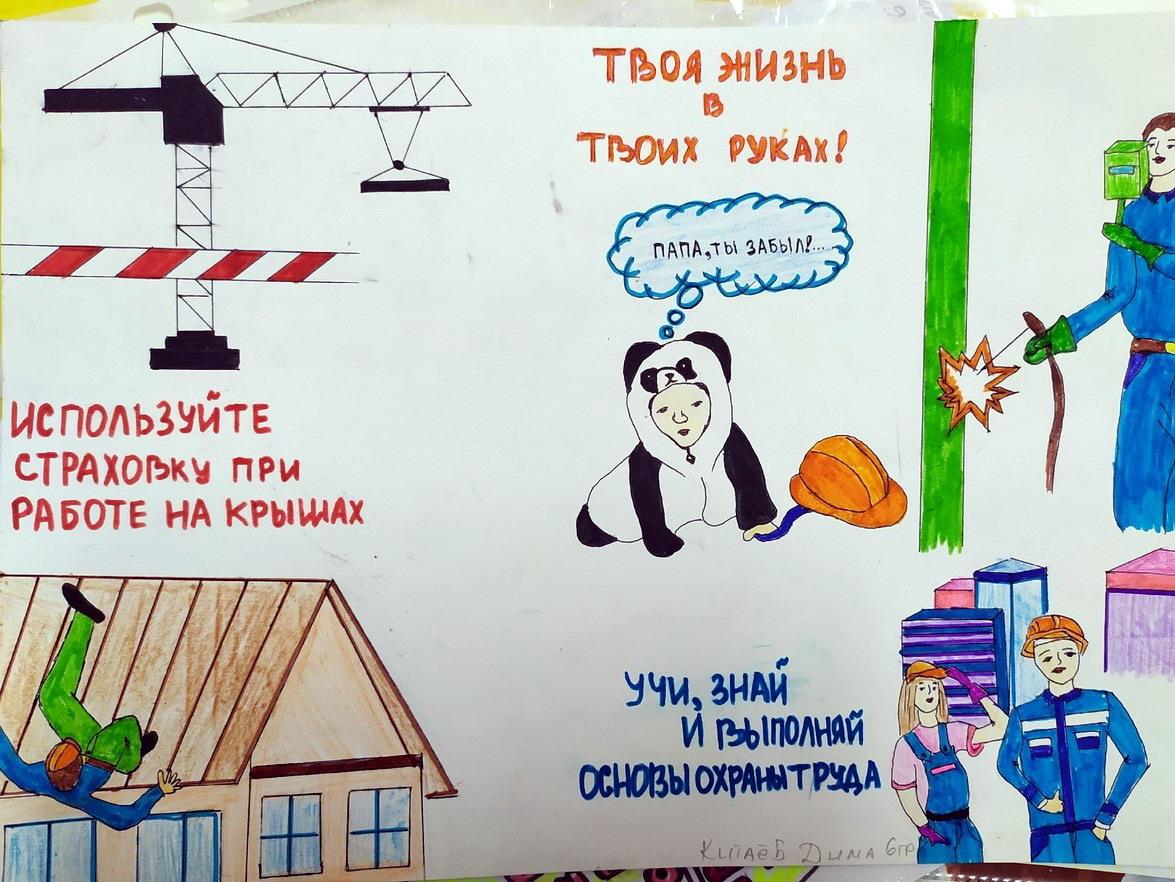 ТВОЯ ЖИЗНЬ
В
ТВОИХ РУКАХ!
ПАПА, ТЫ ЗАБЫЛ!...
ИСПОЛЬЗУЙТЕ
СТРАХОВКУ ПРИ
РАБОТЕ НА КРЫШАХ
УЧИ, ЗНАЙ
И ВЫПОЛНЯЙ
ОСНОВЫ ОХРАНЫ ТРУДА
Дима 6гр